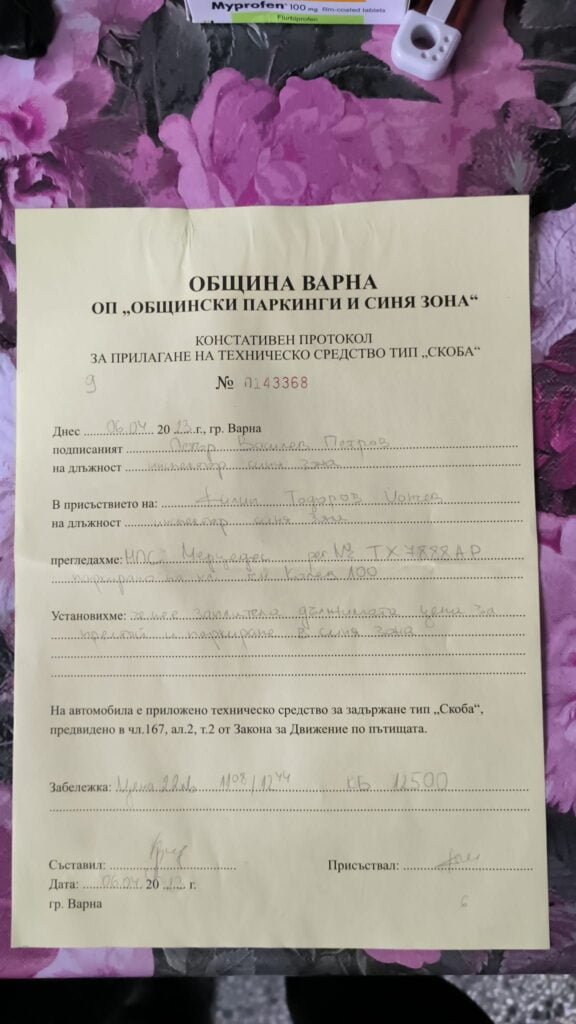 Myprofen 100 mg film-coated tablets
Flurbiprofen
ОБЩИНА ВАРНА
ОП „ОБЩИНСКИ ПАРКИНГИ И СИНЯ ЗОНА“
КОНСТАТИВЕН ПРОТОКОЛ
ЗА ПРИЛАГАНЕ НА ТЕХНИЧЕСКО СРЕДСТВО ТИП „СКОБА“
9 № 0143368
Днес 06.04 20 23 г., гр. Варна
подписаният Петър Василев Петров
на длъжност инспектор синя зона
В присъствието на: Филип Тодоров
на длъжност инспектор синя зона
прегледахме: МПС Мерцедес рег № ТХ 7888 АР
паркирано на ул. 100
Установихме: че не е заплатена дължимата цена за
престой и паркиране в синя зона
На автомобила е приложено техническо средство за задържане тип „Скоба“,
предвидено в чл.167, ал.2, т.2 от Закона за Движение по пътищата.
Забележка: Цена 22лв 11 08 / 12 44 КБ 12500
Съставил: Присъствал:
Дата: 06.04 20 23 г.
гр. Варна 6